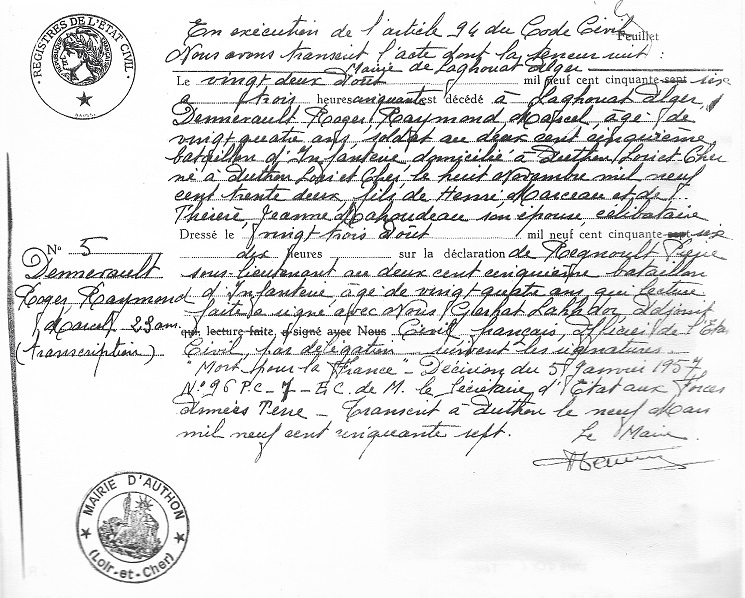 REGISTRES DE L'ETAT CIVIL
En exécution de l'article 94 du Code Civil
Feuillet
Nous avons transcrit l'acte dont la teneur suit :
Mairie de Laghouat Alger
Le vingt deux Août mil neuf cent cinquante sept six
à trois heures cinquante est décédé à Laghouat Alger,
Dennevault Roger Raymond Marcel, âgé de
vingt quatre ans soldat au deux cent cinquième
bataillon d'Infanterie domicilié à Authon Loir et Cher
né à Authon Loir et Cher le huit Novembre mil neuf
cent trente deux, fils de Henri Marceau et de
Thérèse Jeanne Mahoudeau son épouse célibataire
Dressé le vingt trois Août mil neuf cent cinquante sept six
dix heures sur la déclaration de Regnoult
sous-lieutenant au deux cent cinquième bataillon
d'Infanterie âgé de vingt quatre ans qui lecture
faite a signé avec Nous, Lakhdar, adjoint
qui, lecture faite, a signé avec Nous Civil français, officier de l'Etat
Civil, par délégation suivent les signatures
"Mort pour la France - Décision du 5 Janvier 1957
N° 96 P.C - 7 - E.C. de M. le Secrétaire d'Etat aux Forces
Armées Terre - Transcrit à Authon le neuf Mars
mil neuf cent cinquante sept.
Le Maire
N° 5
Dennevault
Roger Raymond
Marcel 23 ans
(transcription)
MAIRIE D'AUTHON
(Loir-et-Cher)